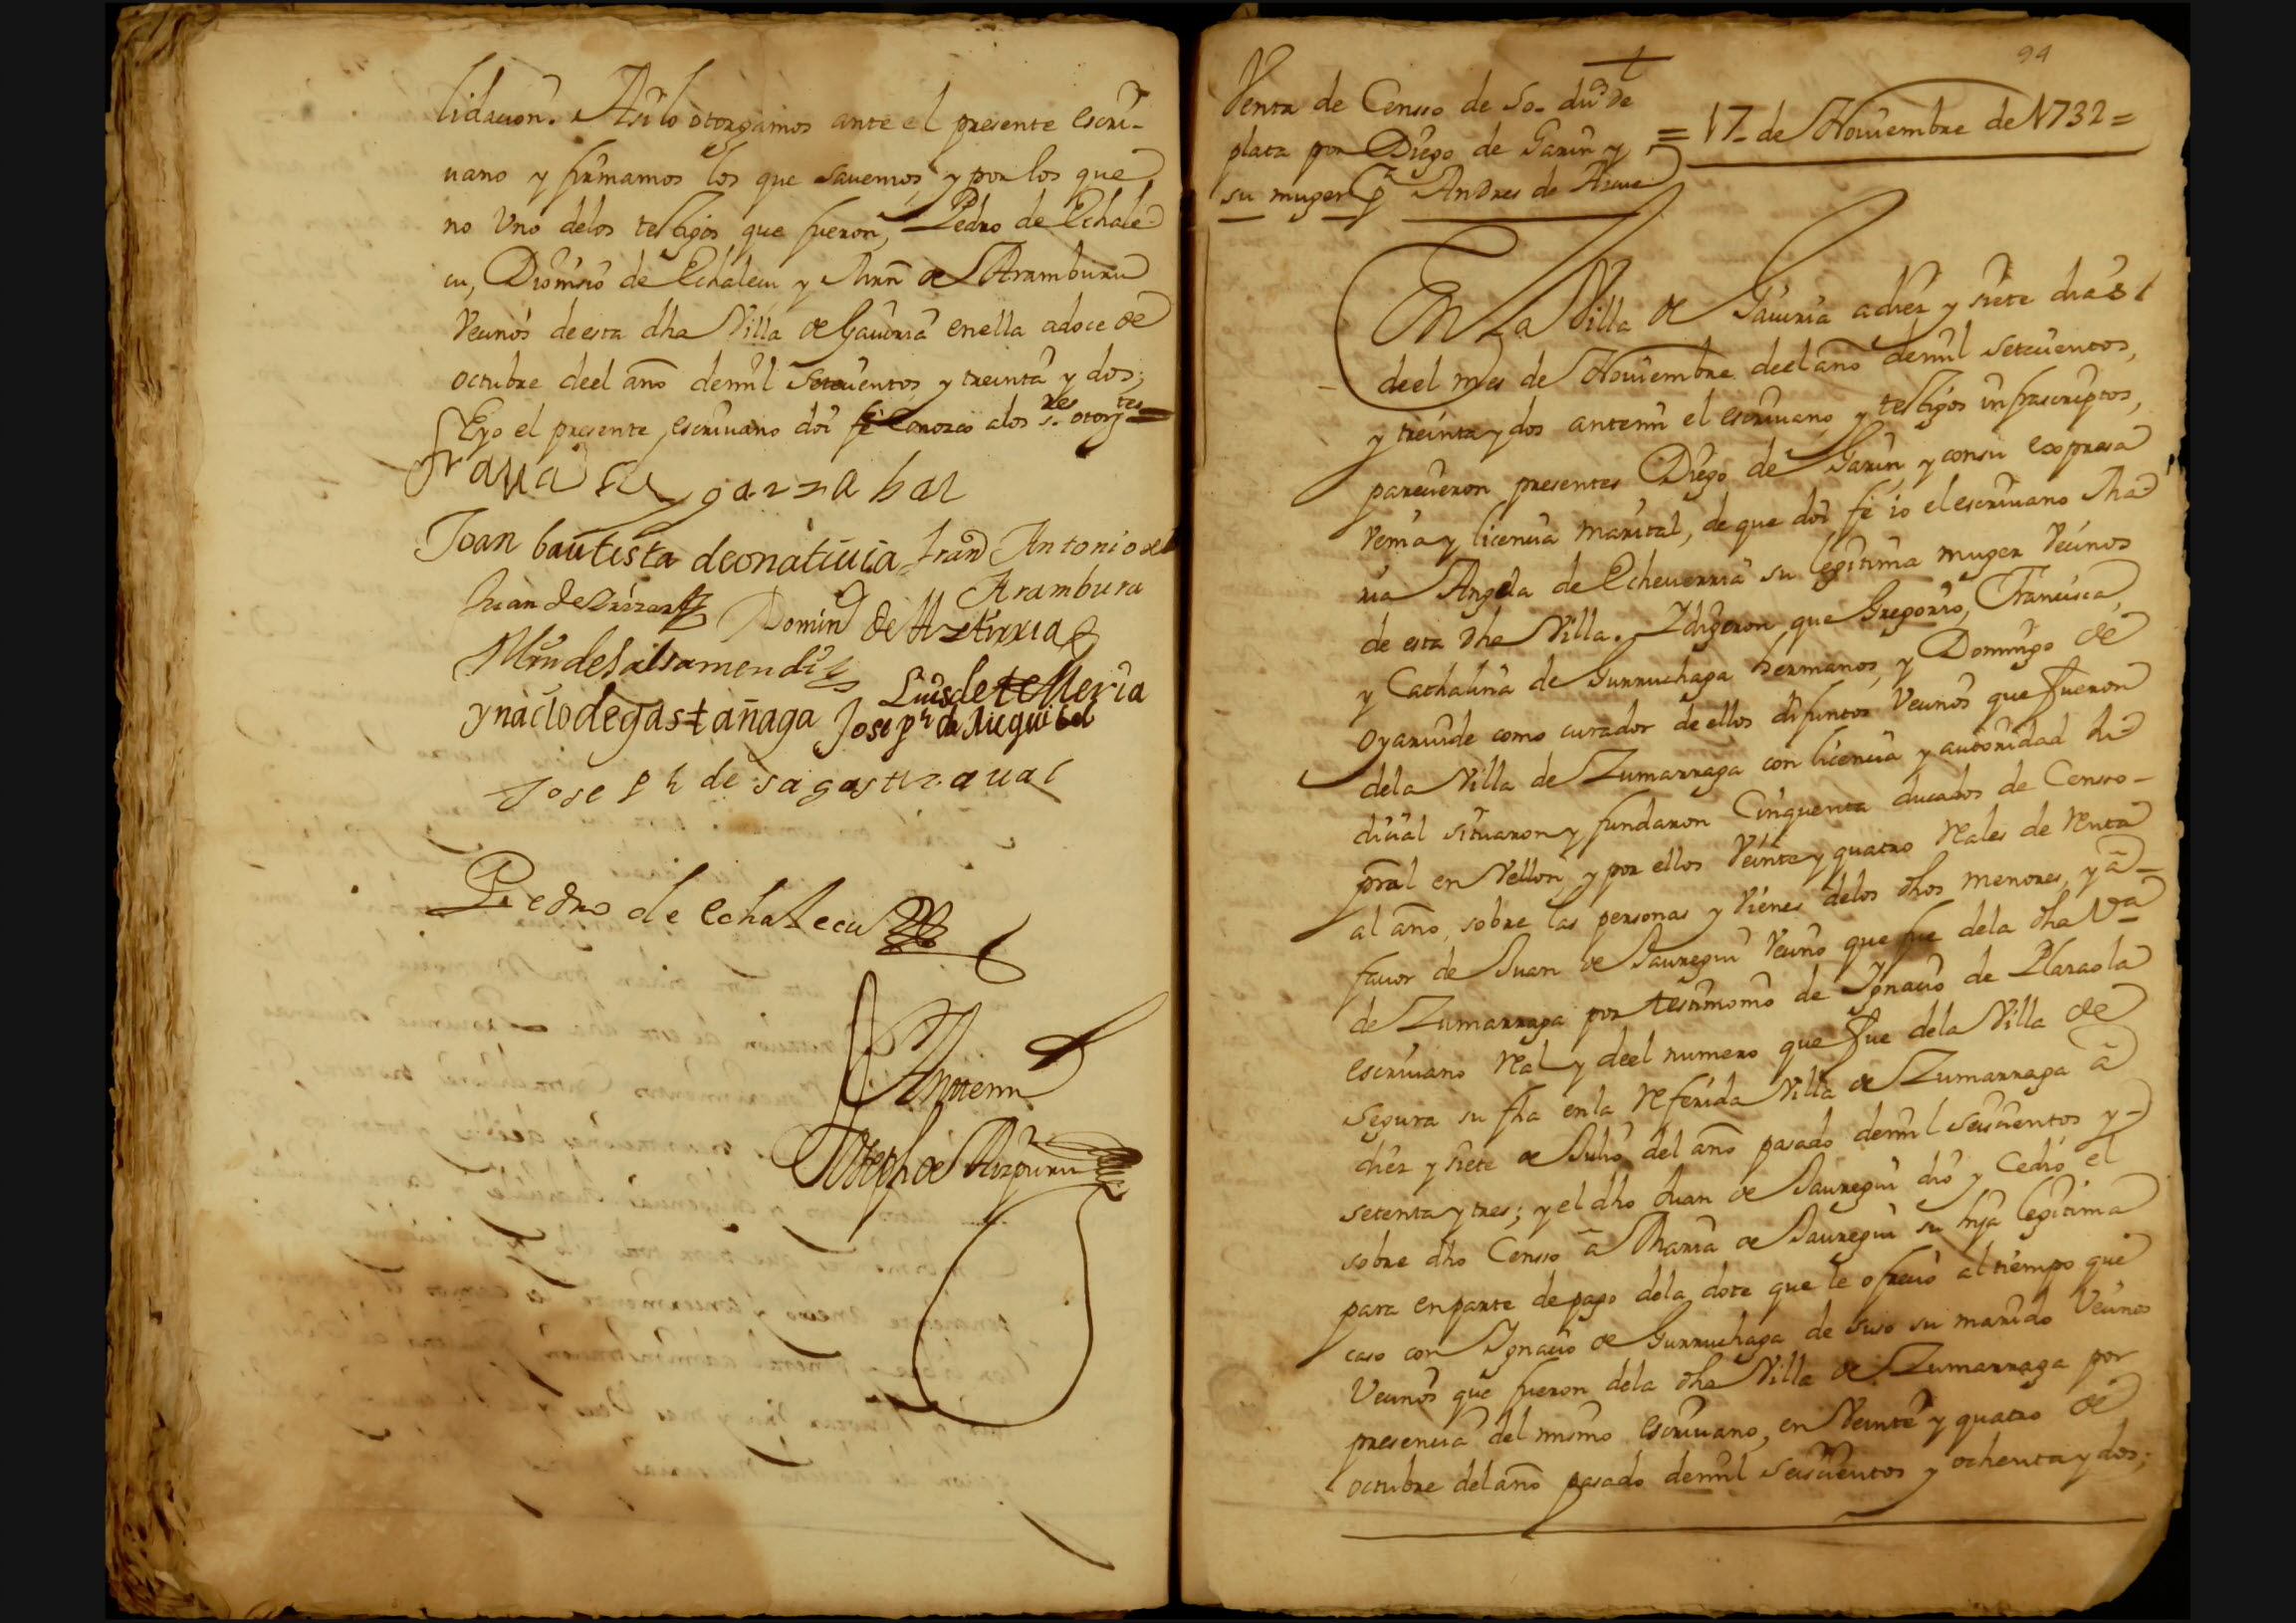 lidacion. Asi lo otorgamos ante el presente escri-
uano y firmamos los que sauemos, y por los que
no Vno delos testigos que fueron, Pedro de Echale
cu, Dionisio de Echalecu y Mrn de Aramburu
Vecinos de esta dha Villa de Gauiria en ella a doce de
octubre deel año de mil Setecientos y treinta y dos;
E yo el presente escriuano doi fe Conozco alos s.res otorg.tes =
Joan bautista de onativia Fran Antonio de
Aramburu
Domin de Aztiria
Mrn de Salsamendi
Luis de telleria
ynacio de gastañaga Joseph de
Joseph de sagastizaual
Pedro de Echalecu
Antemi
Joseph de Aizpuru
94
Venta de Censso de 50. du.s de
plata por Diego de Garin y
su muger Andres de
= 17 de Nouiembre de 1732 =
En La Villa de Gauiria a diez y siete dias
deel mes de Nouiembre deel año de mil setecientos,
y treinta y dos antemi el escriuano y testigos infrascriptos,
parecieron presentes Diego de Garin, y con su expresa
Venia y licencia marital, de que doi fe io el escriuano Ma-
ria Angela de Echeuerria su legitima muger Vecinos
de esta dha Villa. Y digeron que Gregorio, Francisca,
y Cathalina de Gurruchaga hermanos, y Domingo de
Oyaruide como curador de ellos difuntos Vecinos que fueron
dela Villa de Zumarraga con licencia y autoridad Ju-
dicial situaron y fundaron Cinquenta ducados de Censso
pral en Vellon, y por ellos Veinte y quatro Reales de Renta
al año, sobre las personas y Vienes delos dhos menores, y à
fauor de Juan de Jauregui Vecino que fue dela dha Va
de Zumarraga por testimonio de Ignacio de Plaraola
escriuano Real y deel numero que fue dela Villa de
Segura su fha en la Referida Villa de Zumarraga à
diez y siete de Julio del año pasado de mil seiscientos y
setenta y tres; y el dho Juan de Jauregui dio y Cedio el
sobre dho Censso à Maria de Jauregui su hija legitima
para en parte de pago dela dote que le ofrecio al tiempo que
caso con Ignacio de Gurruchaga de suso su marido Vecinos
Vecinos que fueron dela dha Villa de Zumarraga por
presencia del mismo escriuano, en Veinte y quatro de
octubre del año pasado de mil seiscientos y ochenta y dos;